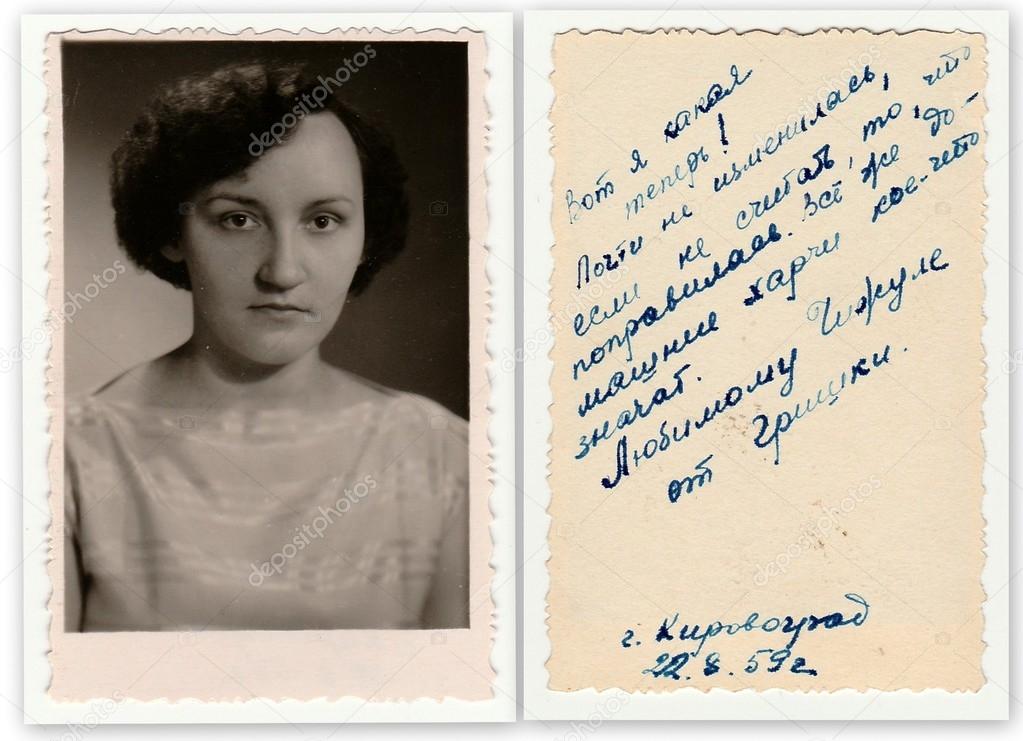 Вот я какая
теперь!
Почти не изменилась,
если не считать, то, что
поправилась. Всё же до-
машние харчи кое-что
значат.
Любимому Чижуле
от Гришки.
г. Кировоград
22.8.59г
depositphotos